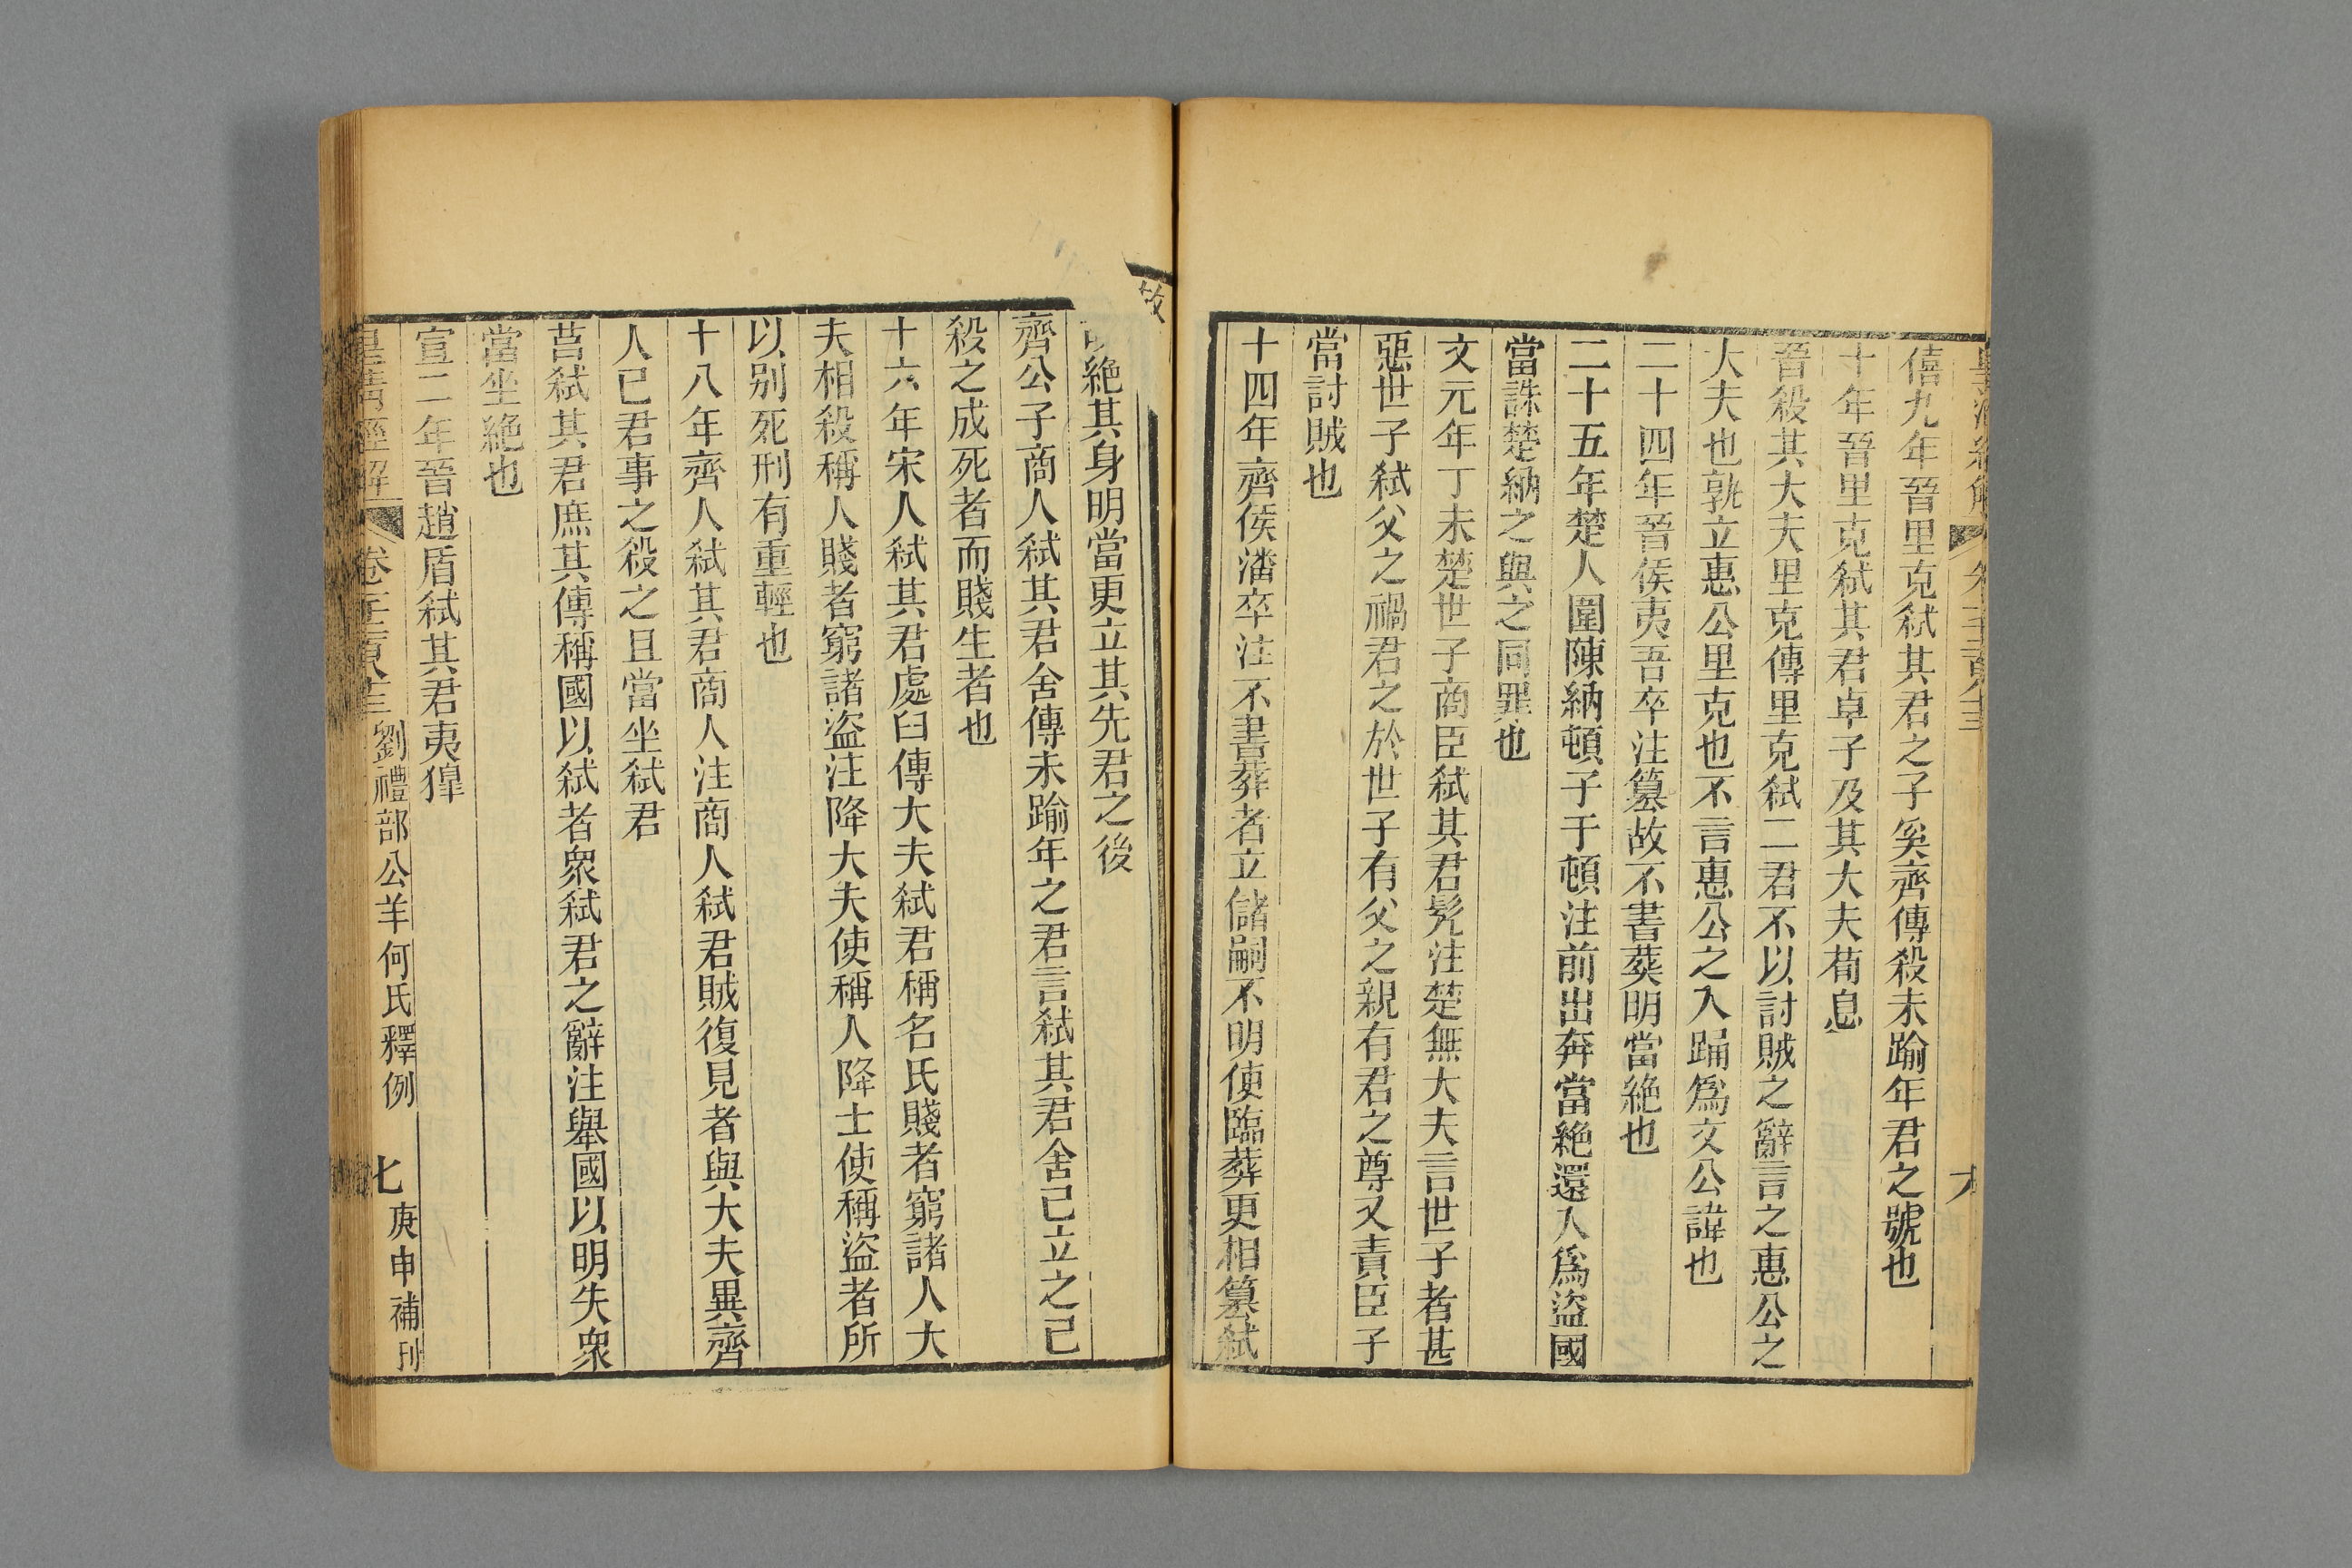 僖九年晉里克弑其君之子奚齊傳殺未踰年君之號也
十年晉里克弑其君卓子及其大夫荀息
晉殺其大夫里克傳里克弑二君不以討賊之辭言之惠公之
大夫也孰立惠公里克也不言惠公之入踊爲文公諱也
二十四年晉侯夷吾卒注篡故不書葬明當絶也
二十五年楚人圍陳納頓子于頓注前出奔當絶還入爲盜國
當誅楚納之與之同罪也
文元年丁未楚世子商臣弑其君髡注楚無大夫言世子者甚
惡世子弑父之禍君之於世子有父之親有君之尊又責臣子
當討賊也
十四年齊侯潘卒注不書葬者立儲嗣不明使臨葬更相篡弑
故絶其身明當更立其先君之後
齊公子商人弑其君舍傳未踰年之君言弑其君舍己立之己
殺之成死者而賤生者也
十六年宋人弑其君處臼傳大夫弑君稱名氏賤者窮諸人大
夫相殺稱人賤者窮諸盜注降大夫使稱人降士使稱盜者所
以别死刑有重輕也
十八年齊人弑其君商人注商人弑君賊復見者與大夫異齊
人已君事之殺之且當坐弑君
莒弑其君庶其傳稱國以弑者衆弑君之辭注舉國以明失衆
當坐絶也
宣二年晉趙盾弑其君夷獋
皇清經解 劉禮部公羊何氏釋例 七 庚申補刊